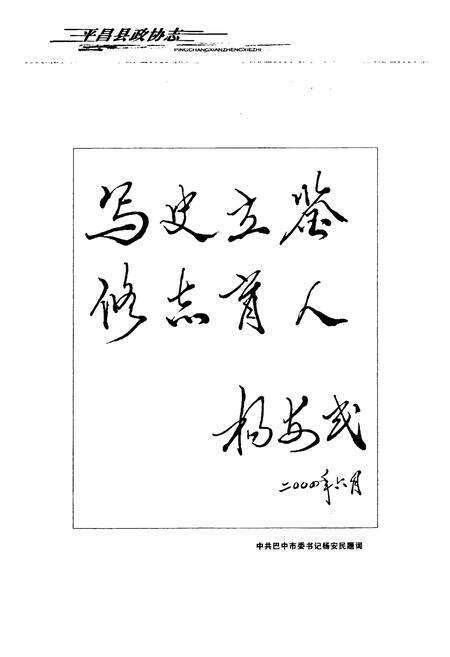 平昌县政协志
PINGCHANGXIANZHENGXIEZHI
写史立鉴
修志育人
杨安民
二〇〇四年六月
中共巴中市委书记杨安民题词